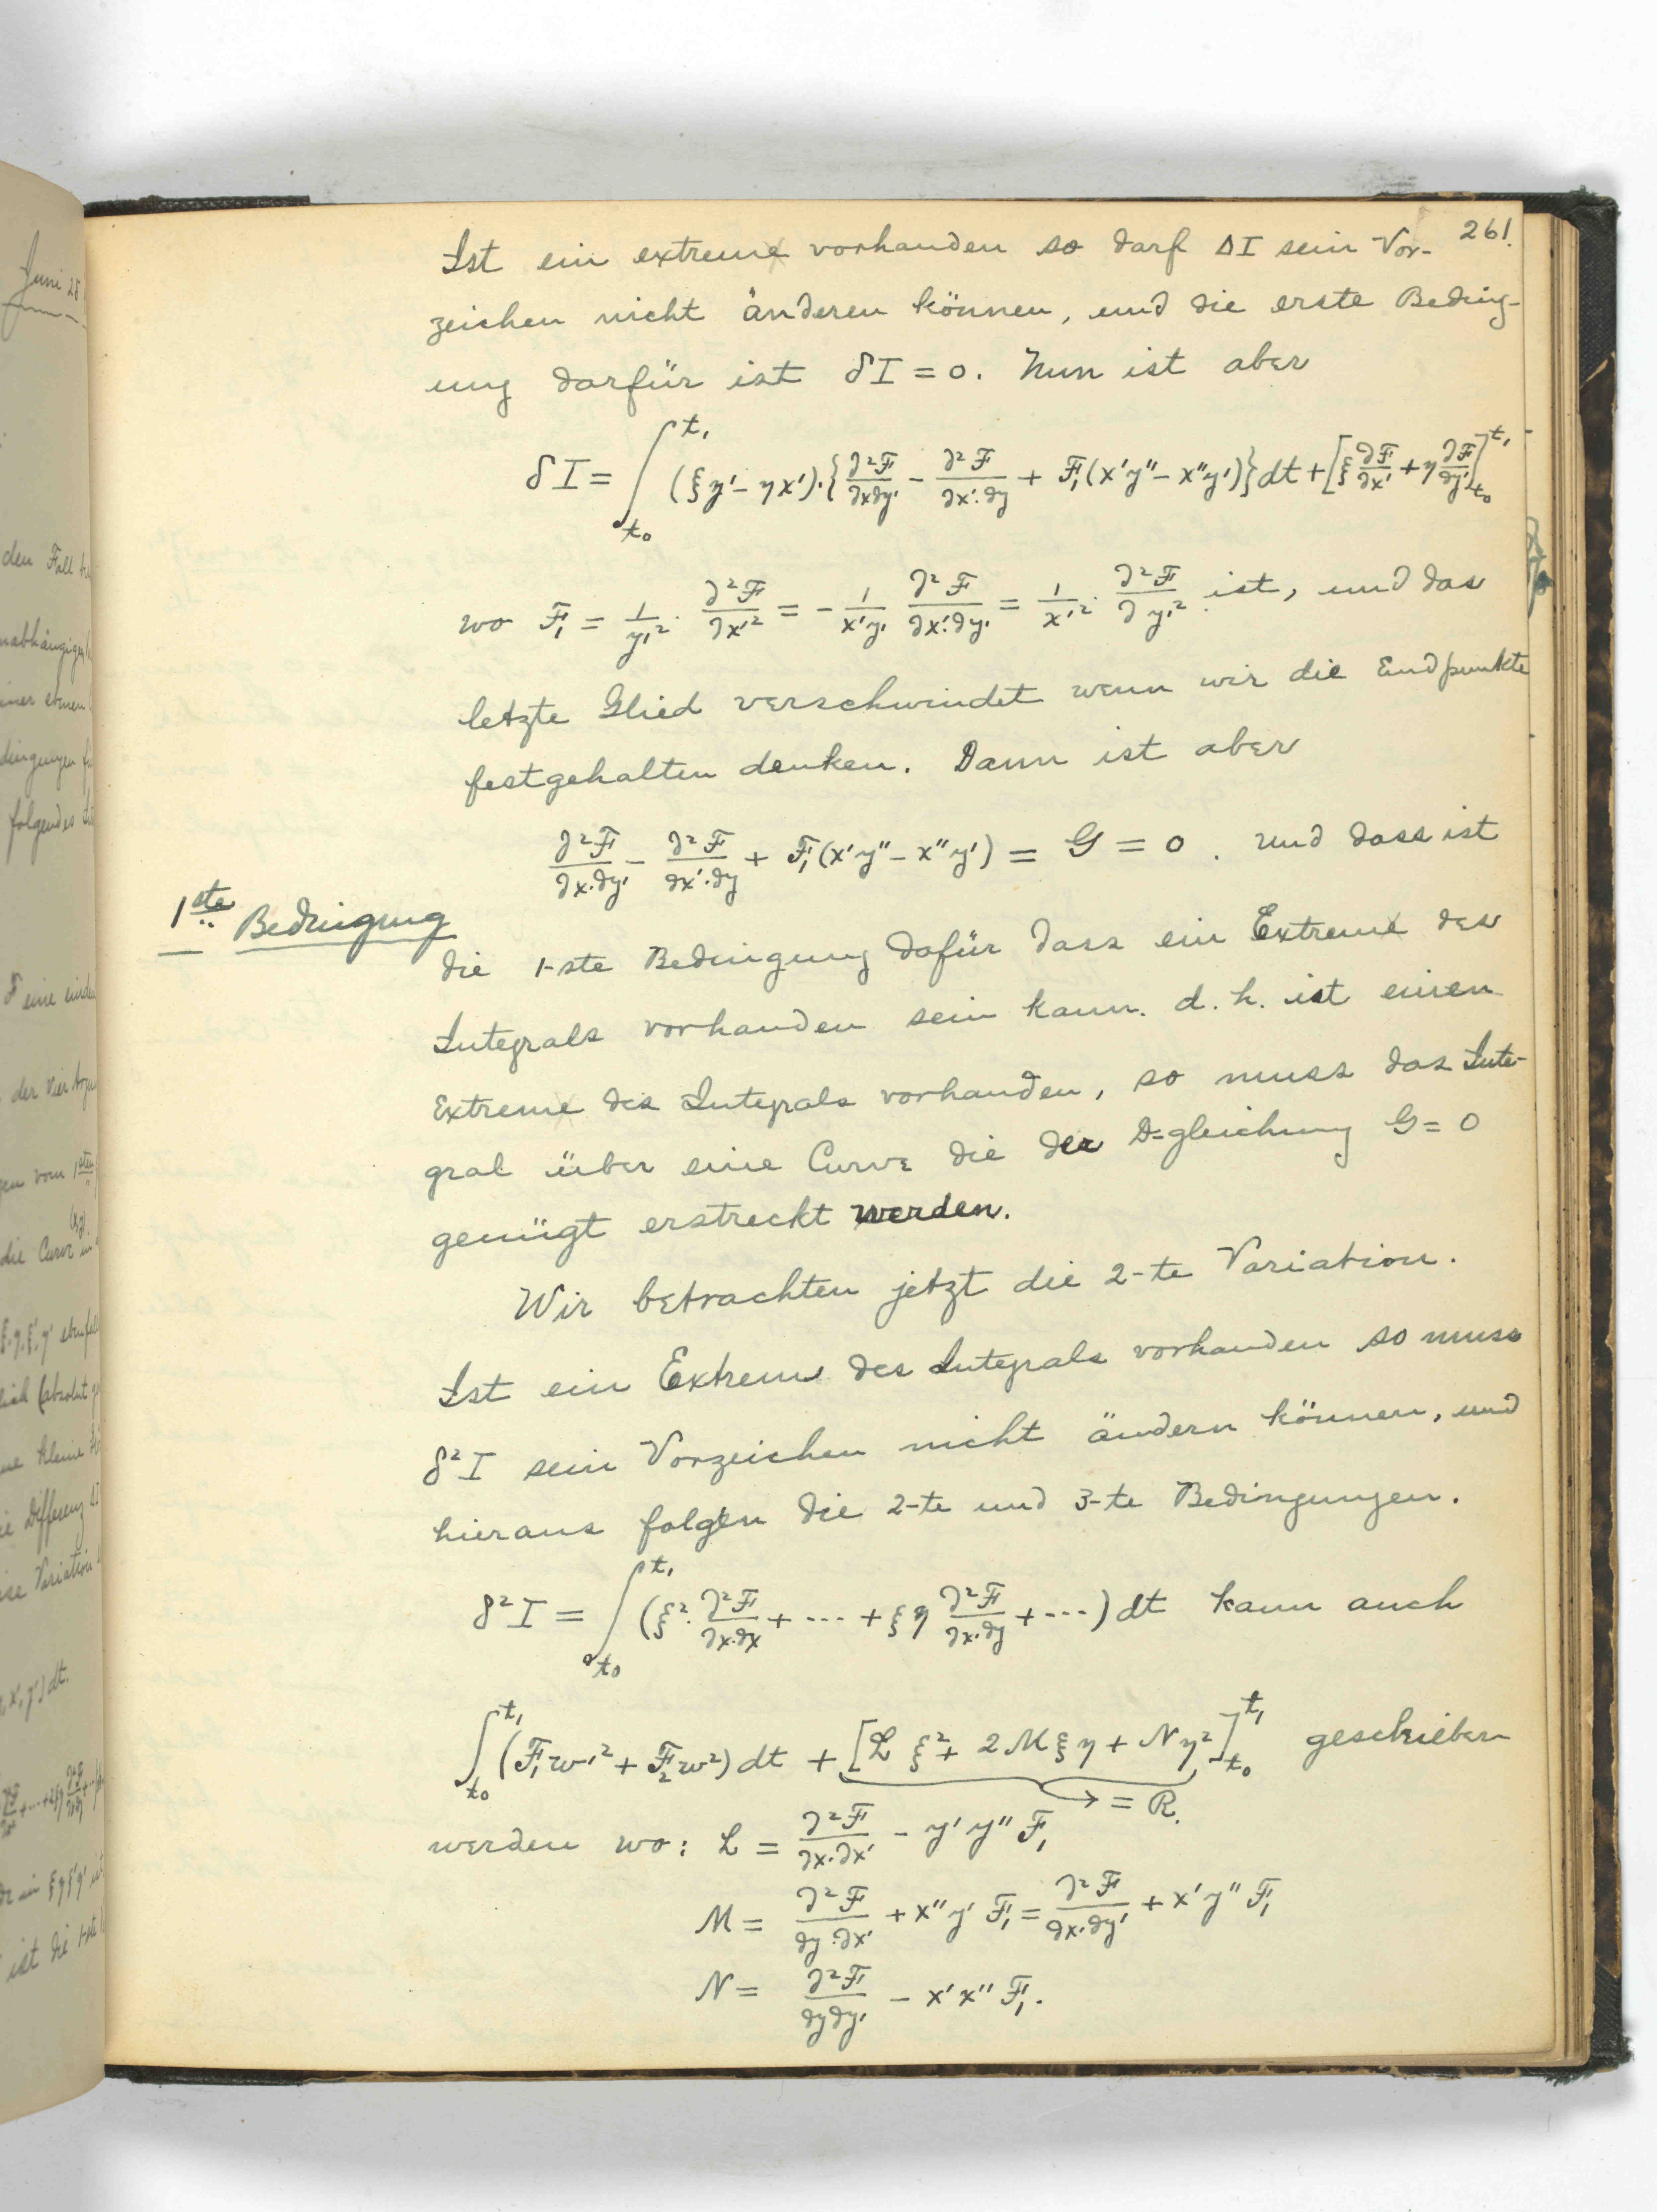 261.
Ist ein extreme vorhanden so darf ΔI sein Vor-
zeichen nicht änderen können, und die erste Beding-
ung darfür ist δI = 0. Nun ist aber
δI = ∫_{t₀}^{t₁} (ξy' - ηx')·{∂²F/∂x∂y' - ∂²F/∂x'·∂y + F₁(x'y'' - x''y')}dt + [ξ ∂F/∂x' + η ∂F/∂y']_{t₀}^{t₁}
wo F₁ = 1/y'² · ∂²F/∂x'² = - 1/x'y' ∂²F/∂x'·∂y' = 1/x'² · ∂²F/∂y'² ist, und das
letzte Glied verschwindet wenn wir die Endpunkte
festgehalten denken. Dann ist aber
∂²F/∂x·∂y' - ∂²F/∂x'·∂y + F₁(x'y'' - x''y') = G = 0. Und dass ist
1ste Bedingung
die 1-ste Bedingung dafür dass ein Extreme des
Integrals vorhanden sein kann. d.h. ist einen
Extreme des Integrals vorhanden, so muss das Inte-
gral über eine Curve die der D=gleichung G = 0
genügt erstreckt werden.
Wir betrachten jetzt die 2-te Variation.
Ist ein Extrem des Integrals vorhanden so muss
δ²I sein Vorzeichen nicht ändern können, und
hieraus folgen die 2-te und 3-te Bedingungen.
δ²I = ∫_{t₀}^{t₁} (ξ²·∂²F/∂x·∂x + --- + ξη ∂²F/∂x·∂y + ---) dt kann auch
∫_{t₀}^{t₁} (F₁w'² + F₂w²) dt + [L ξ² + 2Mξη + Nη²]_{t₀}^{t₁} geschrieben
→ = R.
werden wo: L = ∂²F/∂x·∂x' - y'y''F₁
M = ∂²F/∂y·∂x' + x''y' F₁ = ∂²F/∂x·∂y' + x'y'' F₁
N = ∂²F/∂y∂y' - x'x'' F₁.
Juni 28
den Fall
folgendes
F eine
der vier
gen vom 1sten
die Curve
ne kleine
ie Differenz ΔI
Variation
, x', y') dt.
ist die 1-ste